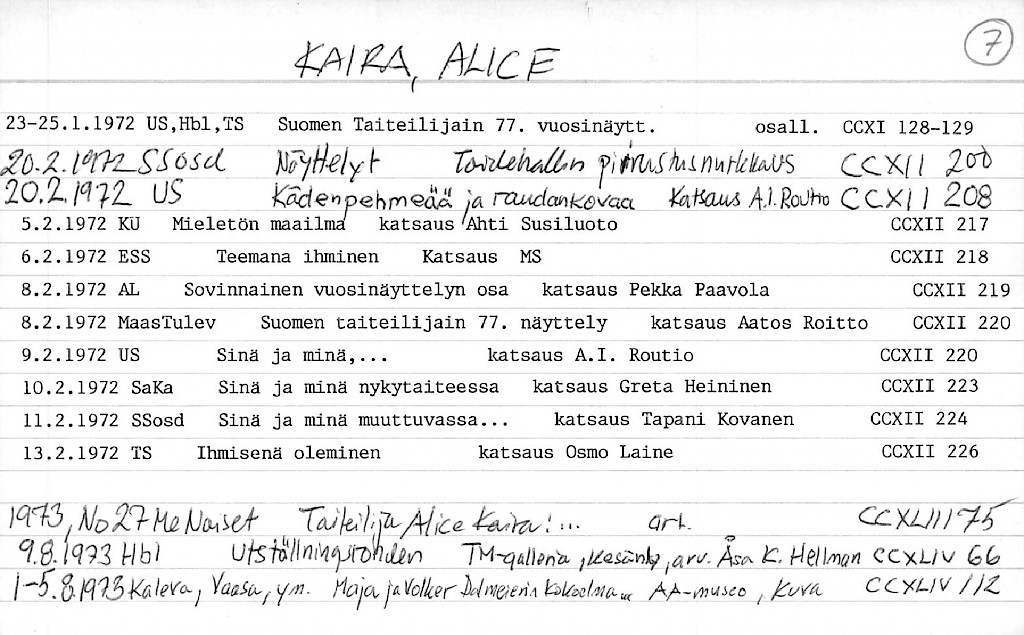 7
KAIRA, ALICE
23-25.1.1972 US,Hbl,TS Suomen Taiteilijain 77. vuosinäytt. osall. CCXI 128-129
20.2.1972 SSosd Näyttelyt Taidehallin piirustusnurkkaus CCXII 200
20.2.1972 US Kädenpehmeää ja raudankovaa Katsaus A.I. Routio CCXII 208
5.2.1972 KU Mieletön maailma katsaus Ahti Susiluoto CCXII 217
6.2.1972 ESS Teemana ihminen Katsaus MS CCXII 218
8.2.1972 AL Sovinnainen vuosinäyttelyn osa katsaus Pekka Paavola CCXII 219
8.2.1972 MaasTulev Suomen taiteilijain 77. näyttely katsaus Aatos Roitto CCXII 220
9.2.1972 US Sinä ja minä,... katsaus A.I. Routio CCXII 220
10.2.1972 SaKa Sinä ja minä nykytaiteessa katsaus Greta Heininen CCXII 223
11.2.1972 SSosd Sinä ja minä muuttuvassa... katsaus Tapani Kovanen CCXII 224
13.2.1972 TS Ihmisenä oleminen katsaus Osmo Laine CCXII 226
1973, No 27 Me Naiset Taiteilija Alice Kaira!... art. CCXLIII 75
9.8.1973 Hbl Utställningsronden TM-galleria, kesänäy, arv. Åsa K. Hellman CCXLIV 66
1-5.8.1973 Kaleva, Vaasa, ym. Maja ja Volker Dolmeierin Kokoelma... AA-museo, kuva CCXLIV 112